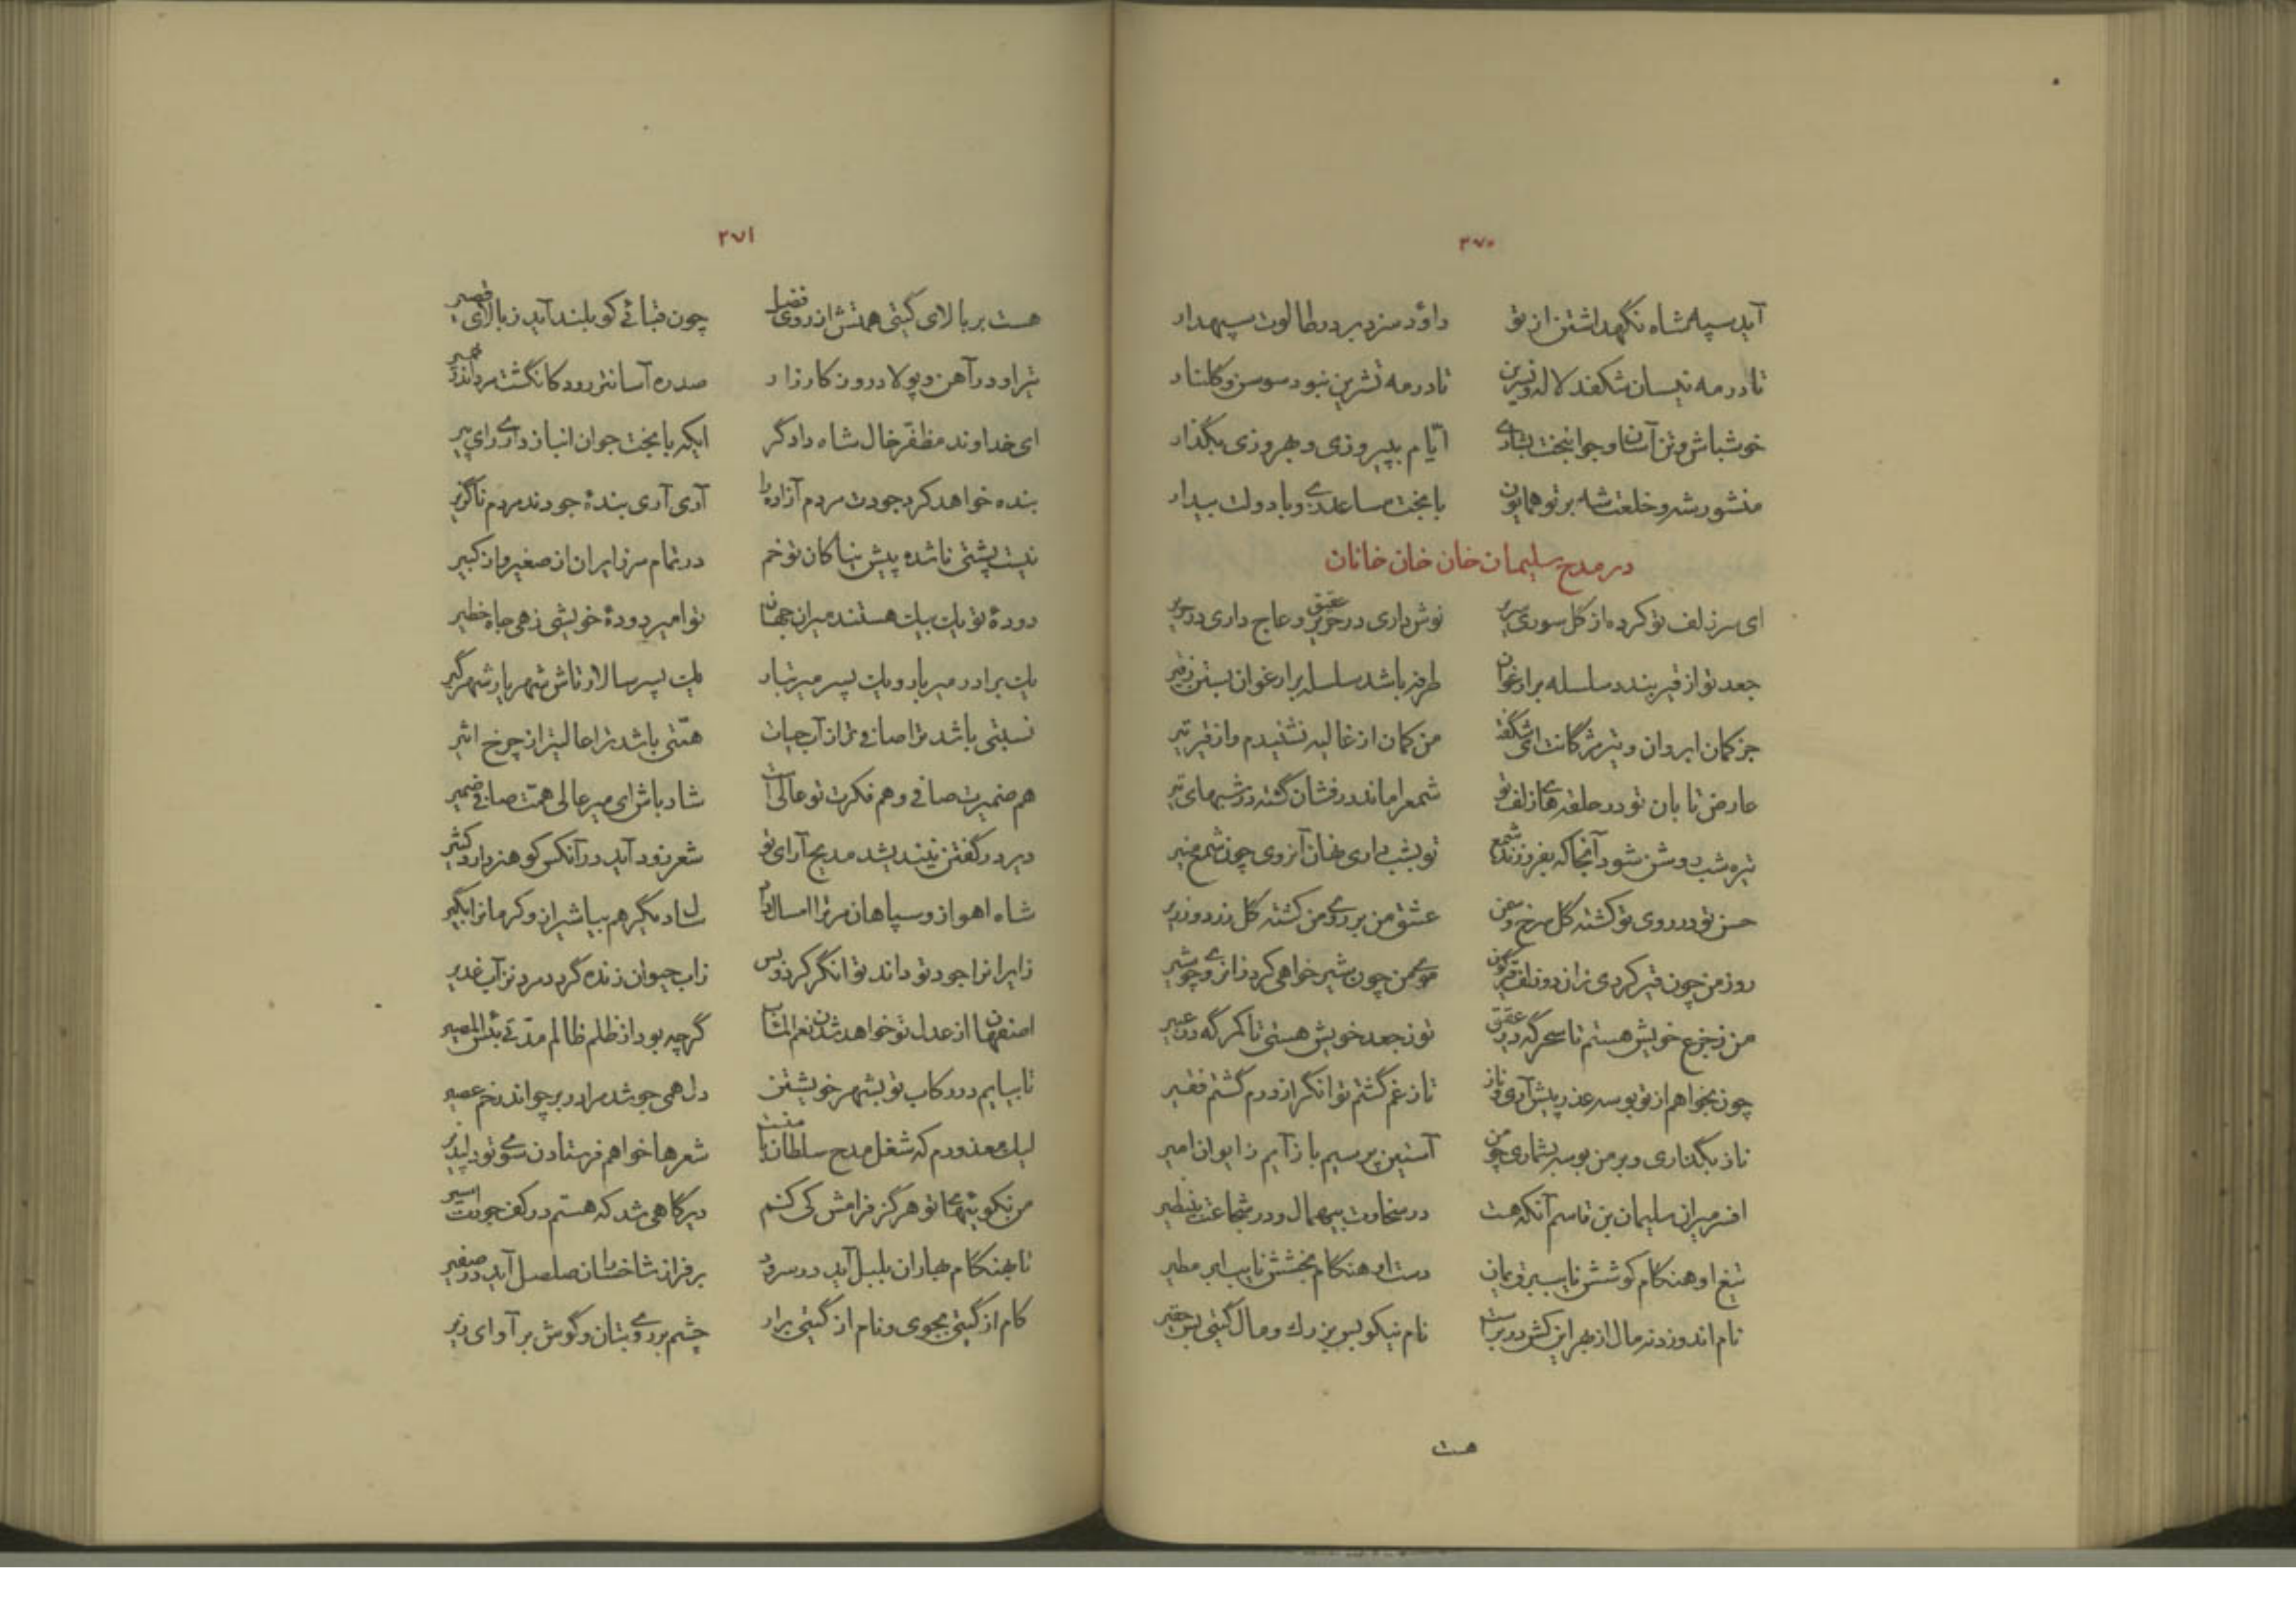 ۲۷۰
آید سپه شاه نگهداشتن از تو داود سزد بر در طالوت سپهدار
تا در مه نیسان شکفد لاله و نسرین تا در مه تشرین نبود سوسن و گلنار
خوشباش و تن آسان و جوانبخت بشادی ایام بپیروزی و بهروزی بگذار
منشور شه و خلعت شه بر تو همایون با بخت مساعد بدی و با دولت بیدار
در مدح سلیمان خان خان خانان
ای سر زلف تو کرده از گل سوری سریر نوش داری در عقیق و عاج داری در حریر
جعد تو از قیر بندد سلسله بر ارغوان طرفه باشد سلسله بر ارغوان بستن ز قیر
جز کمان ابروان و تیر مژگانت ای شگفت من کمان از غالیه نشنیدم و از قیر تیر
عارض تابان تو در حلقه های زلف تو شمع را ماند درفشان گشته در شبهای تیر
تیره شب روشن شود آنجا که بفروزند شمع تو بشب داری نهان آنروی چون شمع منیر
حسن تو در روی تو کشته گل سرخ و سمن عشق من بر روی من کشته گل زرد و زریر
روز من چون قیر کردی زان دو زلف قیرگون موی من چون شیر خواهی کرد زانروی چو شیر
من ز جزع خویش هستم تا سحرگه در عقیق تو ز جعد خویش هستی تا کمرگه در عبیر
چون بخواهم از تو بوسه عذر پیش آری و ناز تا ز غم گشتم توانگر از درم گشتم فقیر
ناز بگذاری و بر من بوسه بشماری چو من آستین پر سیم باز آیم ز ایوان امیر
افسر میران سلیمان بن قاسم آنکه هست در سخاوت بیهمال و در شجاعت بینظیر
تیغ او هنگام کوشش نایب ببر دمان دست او هنگام بخشش نایب ابر مطیر
نام اندوزد نه مال از بهر این کش در بر است نام نیکو بس بزرگ و مال گیتی بس حقیر
هست
۲۷۱
هست بر بالای گیتی همتش از روی فضل چون قبائی کو بلند آید ز بالای قصیر
تیر او در آهن و پولاد روز کارزار صد ره آسانتر رود کانگشت مرد اندر خمیر
ای خداوند مظفر خال شاه دادگر ایکه با بخت جوان انباز داری رای پیر
بنده خواهد کرد جودت مردم آزاده را آری آری بندهٔ جودند مردم ناگزیر
نیست پشتی ناشده پیش نیاکان تو خم در تمام مرز ایران از صغیر و از کبیر
دودهٔ تو یک بیک هستند میران جهان تو امیر دودهٔ خویشی زهی جاه خطیر
یک برادر میر بار و یک پسر میر تبار یک پسر سالار تاش شهریار شهرگیر
نسبتی باشد ترا صافی تر از آب حیات همتی باشد ترا عالیتر از چرخ اثیر
هم ضمیرت صافی و هم فکرت تو عالی است شاد باش ای میر عالی همت صافی ضمیر
دیر در گفتن نیندیشد مدیح آرای تو شعر زود آید در آنکس کو هنر دارد کثیر
شاه اهواز و سپاهان مر ترا امسال داد سال دیگر هم بیا شیراز و کرمانرا بگیر
زایرانرا جود تو داند توانگر کرد و بس زاب حیوان زنده گردد مرد نز آب غدیر
اصفهان از عدل تو خواهد شدن نعم المآب گرچه بود از ظلم ظالم مدتی بئس المصیر
تا بیایم در رکاب تو بشهر خویشتن دل همی جوشد مرا در بر چو اندر خم عصیر
لیک معذورم که شغل مدح سلطان با منست شعرها خواهم فرستادن سوی تو دلپذیر
من نکوئیهای تو هرگز فرامش کی کنم دیرگاهی شد که هستم در کف جودت اسیر
تا بهنگام بهاران بلبل آید در سرود بر فراز شاخساران صلصل آید در صفیر
کام از گیتی بجوی و نام از گیتی برآر چشم بر روی بتان و گوش بر آوای زیر